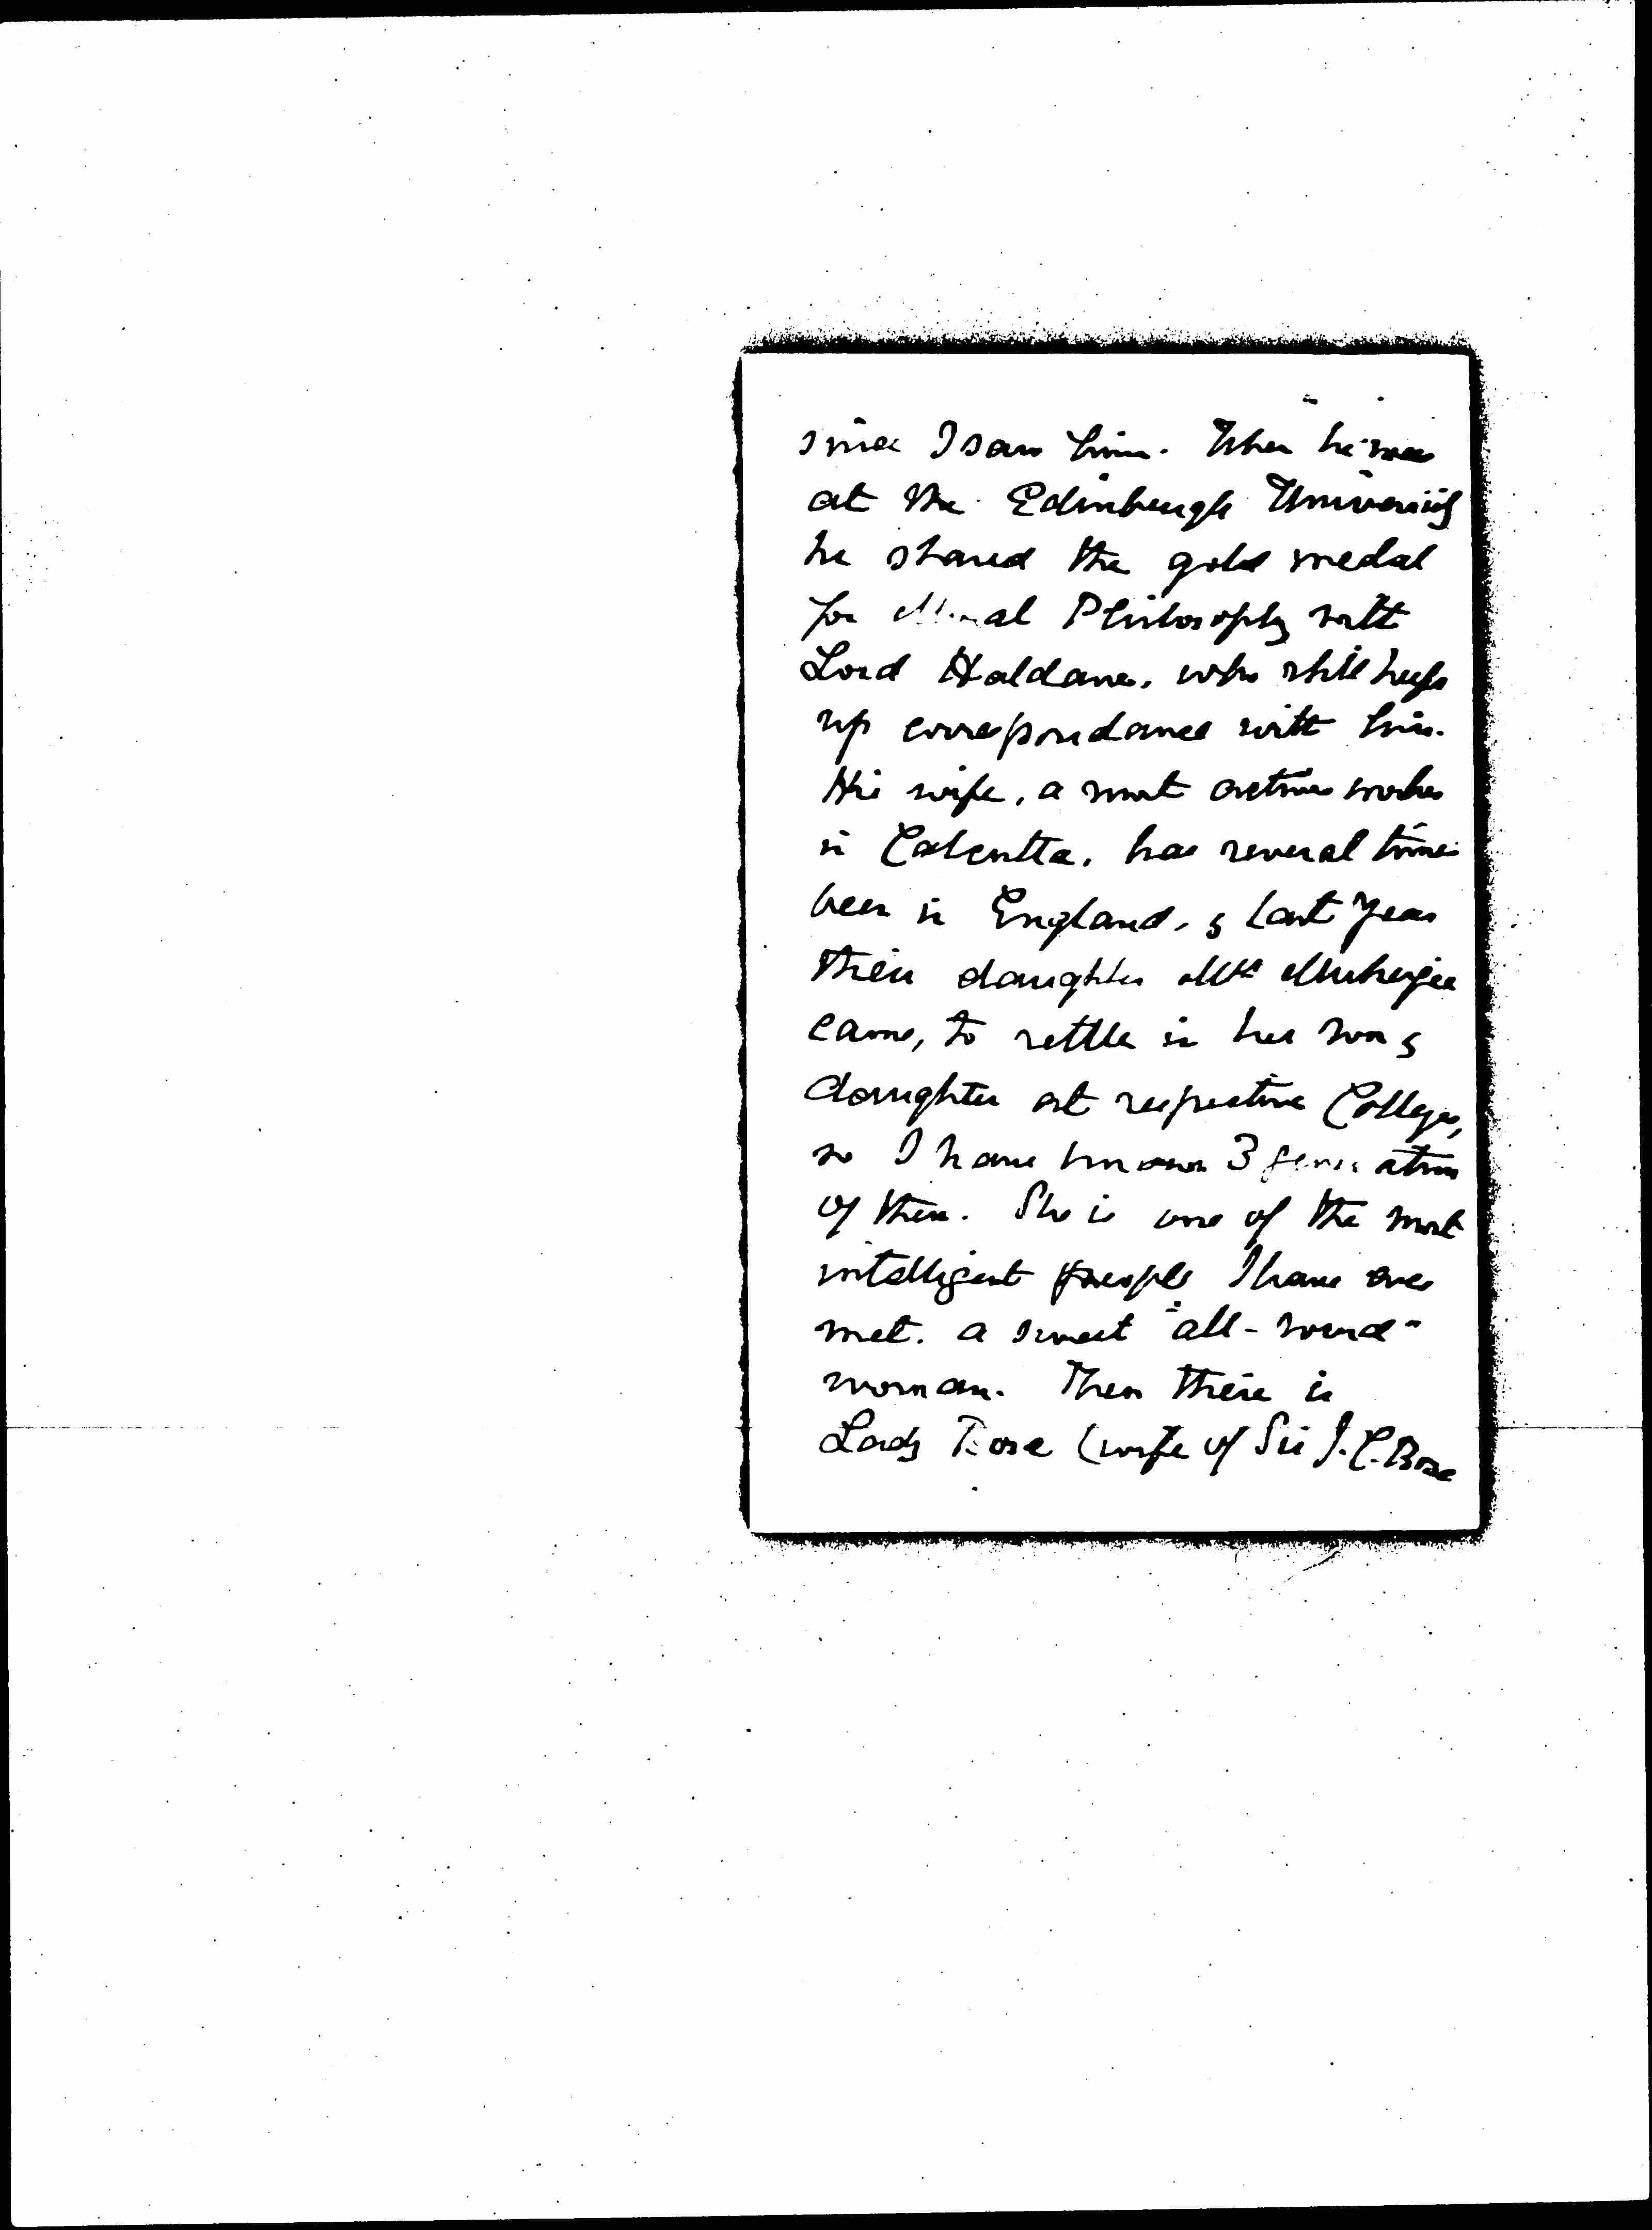 since I saw him. When he was
at the Edinburgh University
he shared the gold medal
for Moral Philosophy with
Lord Haldane, who still keeps
up correspondance with him.
His wife, a most active worker
in Calcutta, has several times
been in England, & last year
their daughter Mrs Mukerjee
came, to settle in her son &
daughter at respective Colleges,
so I have known 3 generations
of them. She is one of the most
intelligent people I have ever
met. a sweet "all-round"
woman. Then there is
Lady Bose (wife of Sir J. C. Bose